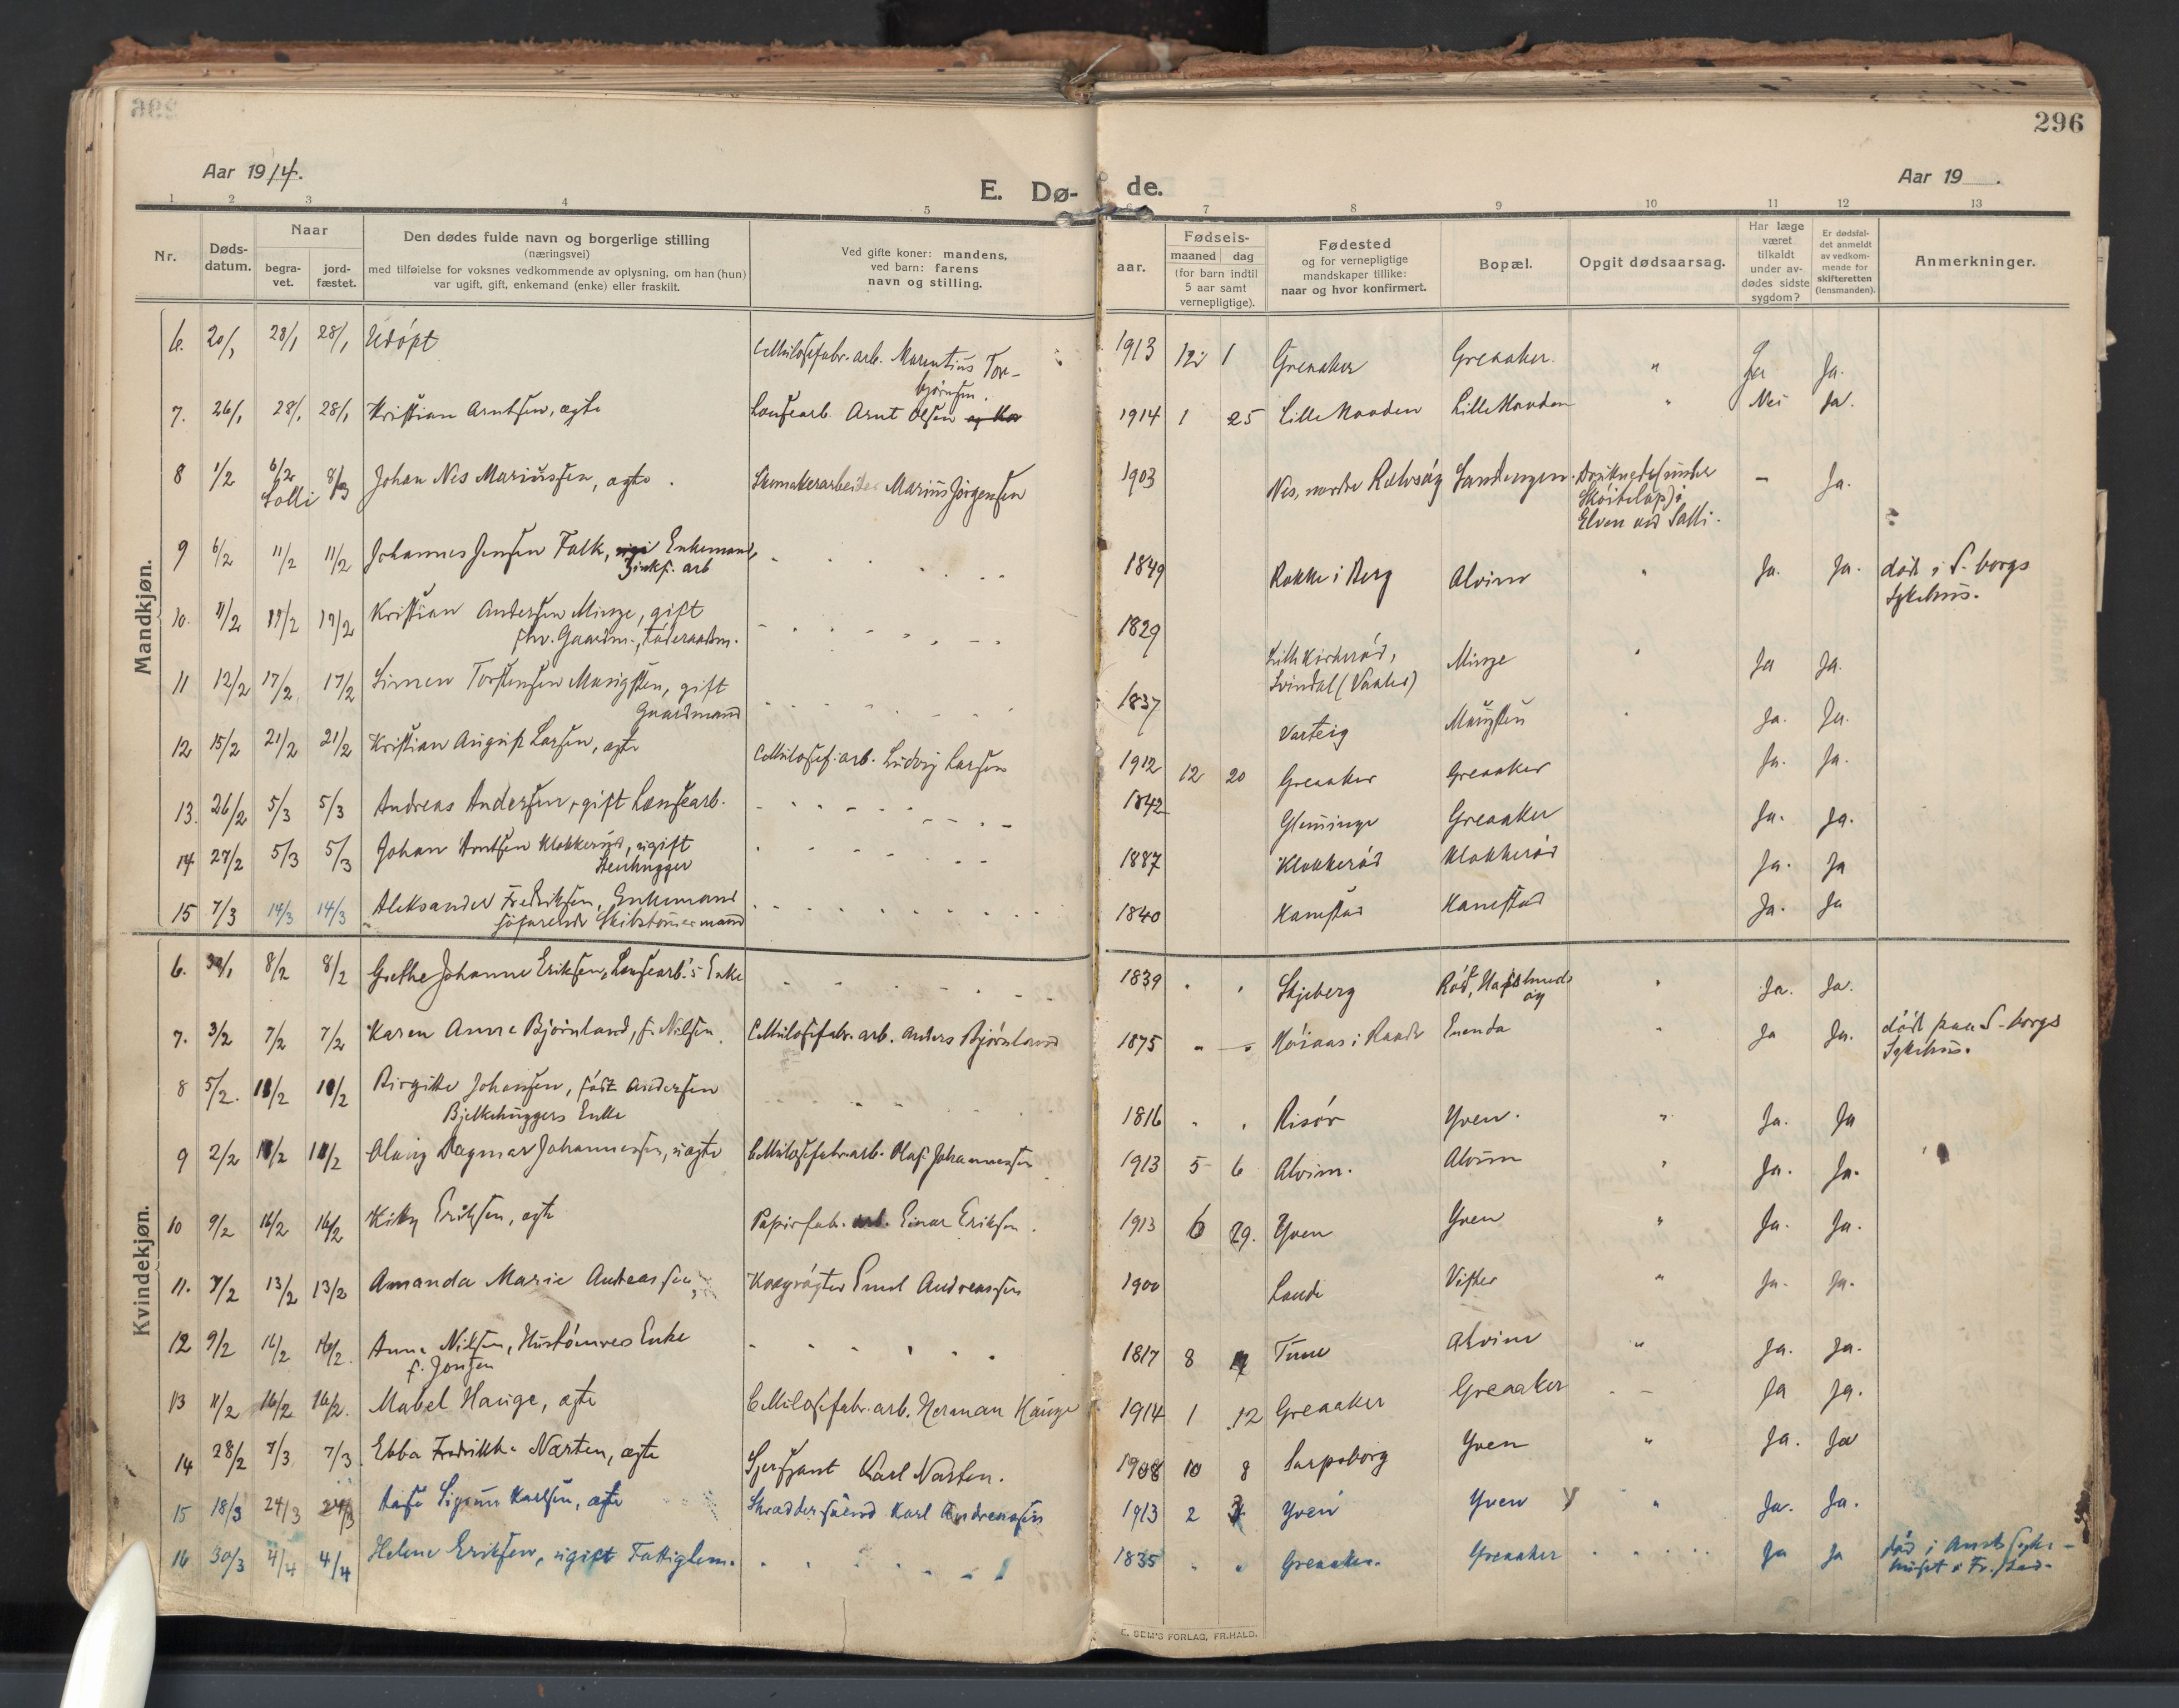 296
Aar 1914.
E. Dø-
de.
Aar 19 .
1 2 3 4 5 6 7 8 9 10 11 12 13
Nr.
Døds-
datum.
Naar
begra-
vet.
jord-
fæstet.
Den dødes fulde navn og borgerlige stilling
(næringsvei)
med tilføielse for voksnes vedkommende av oplysning, om han (hun)
var ugift, gift, enkemand (enke) eller fraskilt.
Ved gifte koner: mandens,
ved barn: farens
navn og stilling.
aar.
Fødsels-
maaned dag
(for barn indtil
5 aar samt
vernepligtige).
Fødested
og for vernepligtige
mandskaper tillike:
naar og hvor konfirmert.
Bopæl.
Opgit dødsaarsag.
Har læge
været
tilkaldt
under av-
dødes sidste
sygdom?
Er dødsfal-
det anmeldt
av vedkom-
mende for
skifteretten
(lensmanden).
Anmerkninger.
Mandkjøn.
6. 20/1 28/1 28/1 Udöpt Cellulosefabr. arb. Marentius Tor-
bjørnsen. 1913 12 1 Greaaker Greaaker. " Ja Ja.
7. 26/1 28/1 28/1 Kristian Arntsen, ægte Lensearb. Arnt Olsen 1914 1 25 " Nei Ja.
8 1/2 6/2 8/3 Johan Nes Mariussen, ægte. Marius Jørgensen 1903 Sandengen. Druknede (under
Solli Skøiteløp) i
Elven ved Solli. - Ja.
9 6/2 11/2 11/2 Johannes Jensen Falk, Enkemand,
Zinkf. arb 1849 Rokke i Berg Alvim " Ja. Ja. død i S-borgs
Sykehus.
10. 11/2 17/2 17/2 Kristian Andersen Minge, gift
fhv. Gaardm., Föderaadsm. 1829
Svindal (Vaaler) Minge " Ja Ja.
11 12/2 17/2 17/2 Simen Torstensen Maugsten, gift
Gaardmand 1837 Varteig Maugsten Ja. Ja.
12 15/2 21/2 21/2 Kristian August Larsen, ægte Cellulosef. arb. Ludvig Larsen 1912 12 20 Greaaker Greaaker Ja. Ja.
13. 26/2 5/3 5/3 Andreas Andersen, gift Lensearb. 1842 Glemminge Greaaker Ja. Ja.
14 27/2 5/3 5/3 Johan Arntsen Klokkeröd, ugift
Stenhugger 1887 Klokkeröd Klokkeröd Ja. Ja
15 7/3 14/3 14/3 Aleksander Fredriksen, Enkemand
söfarende Skibstömmermand 1840 Kanestad Kanestad Ja. Ja
Kvindekjøn.
6. 8/2 8/2 Grethe Johanne Eriksen, Lensearb.'s Enke 1839 Skjeberg " Ja. Ja.
7. 3/2 7/2 7/2 Karen Anne Bjørnland, f. Nilsen Cellulosefabr. arb. Anders Bjørnland 1875 Enenda " Ja Ja. död paa S-borgs
Sykehus.
8 5/2. 10/2 10/2 Birgitte Johansen, födt Andersen
Bjelkehuggers Enke 1816 Risör Yven. " Ja. Ja
9 2/2 10/2 10/2 Olaug Dagmar Johannessen, uægte Cellulosefabr. arb. Olaf Johannessen 1913 5 6 Alvim. Alvim " Ja. Ja.
10 9/2 16/2 16/2 Kitty Eriksen, ægte Papirfab. arb. Einar Eriksen. 1913 6 29. Yven Yven " Ja. Ja.
11. 7/2 13/2 13/2 Amanda Marie Andreassen, Emil Andreassen 1900 Lande Vister " Ja. Ja.
12 9/2 16/2 16/2. Anne Nilsen, Hustömres Enke
f. Jonsen 1817 8 Tune Alvim " Ja. Ja.
13 11/2 16/2 16/2. Mabel Hauge, ægte Cellulosefabr. arb. Herman Hauge 1914 1 12 Greaaker Greaaker Ja Ja.
14 28/2 7/3 7/3 Ebba Fredrikke Narten, ægte Sjersjant Karl Narten. 1908 10 8 Sarpsborg Yven " Ja. Ja
15 18/3 24/3 24/3 Aase Sigrun Karlsen, ægte Skræddersvend Karl Andreassen 1913 2 Yven Yven " Ja. Ja.
16 30/3 4/4 4/4 Helene Eriksen, ugift Fattiglem. 1835 Greaaker. Greaaker Ja Ja död i Amtssyke-
huset i Fr.stad.
E. SEM'S FORLAG, FR.HALD.